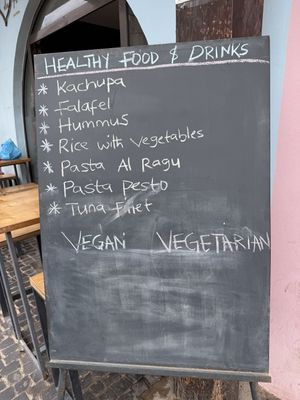 HEALTHY FOOD & DRINKS
* Kachupa
* Falafel
* Hummus
* Rice with Vegetables
* Pasta Al Ragu
* Pasta Pesto
* Tuna
VEGAN VEGETARIAN